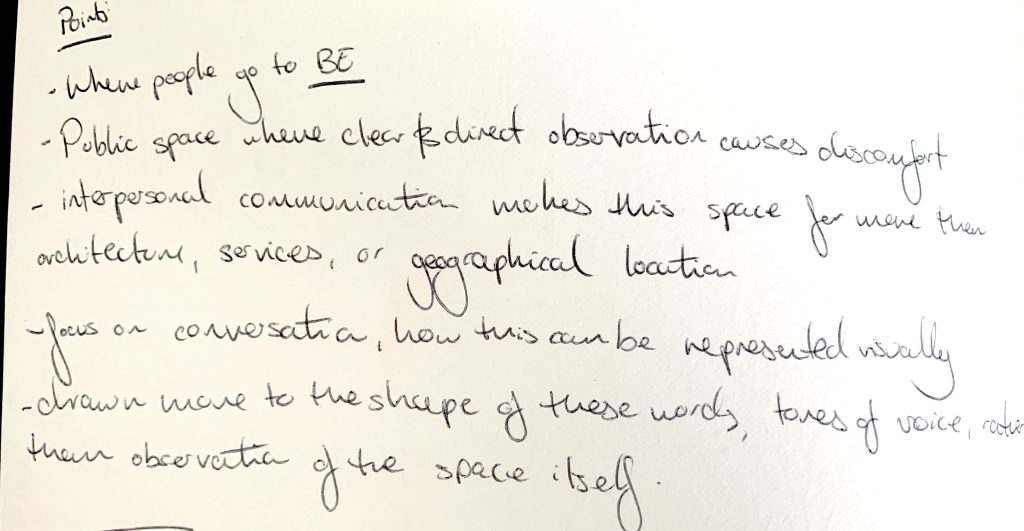 Points
- Where people go to BE
- Public space where clear & direct observation causes discomfort
- interpersonal communication makes this space far more than
architecture, services, or geographical location
- focus on conversation, how this can be represented visually
- drawn more to the shape of these words, tones of voice, rather
than observation of the space itself.